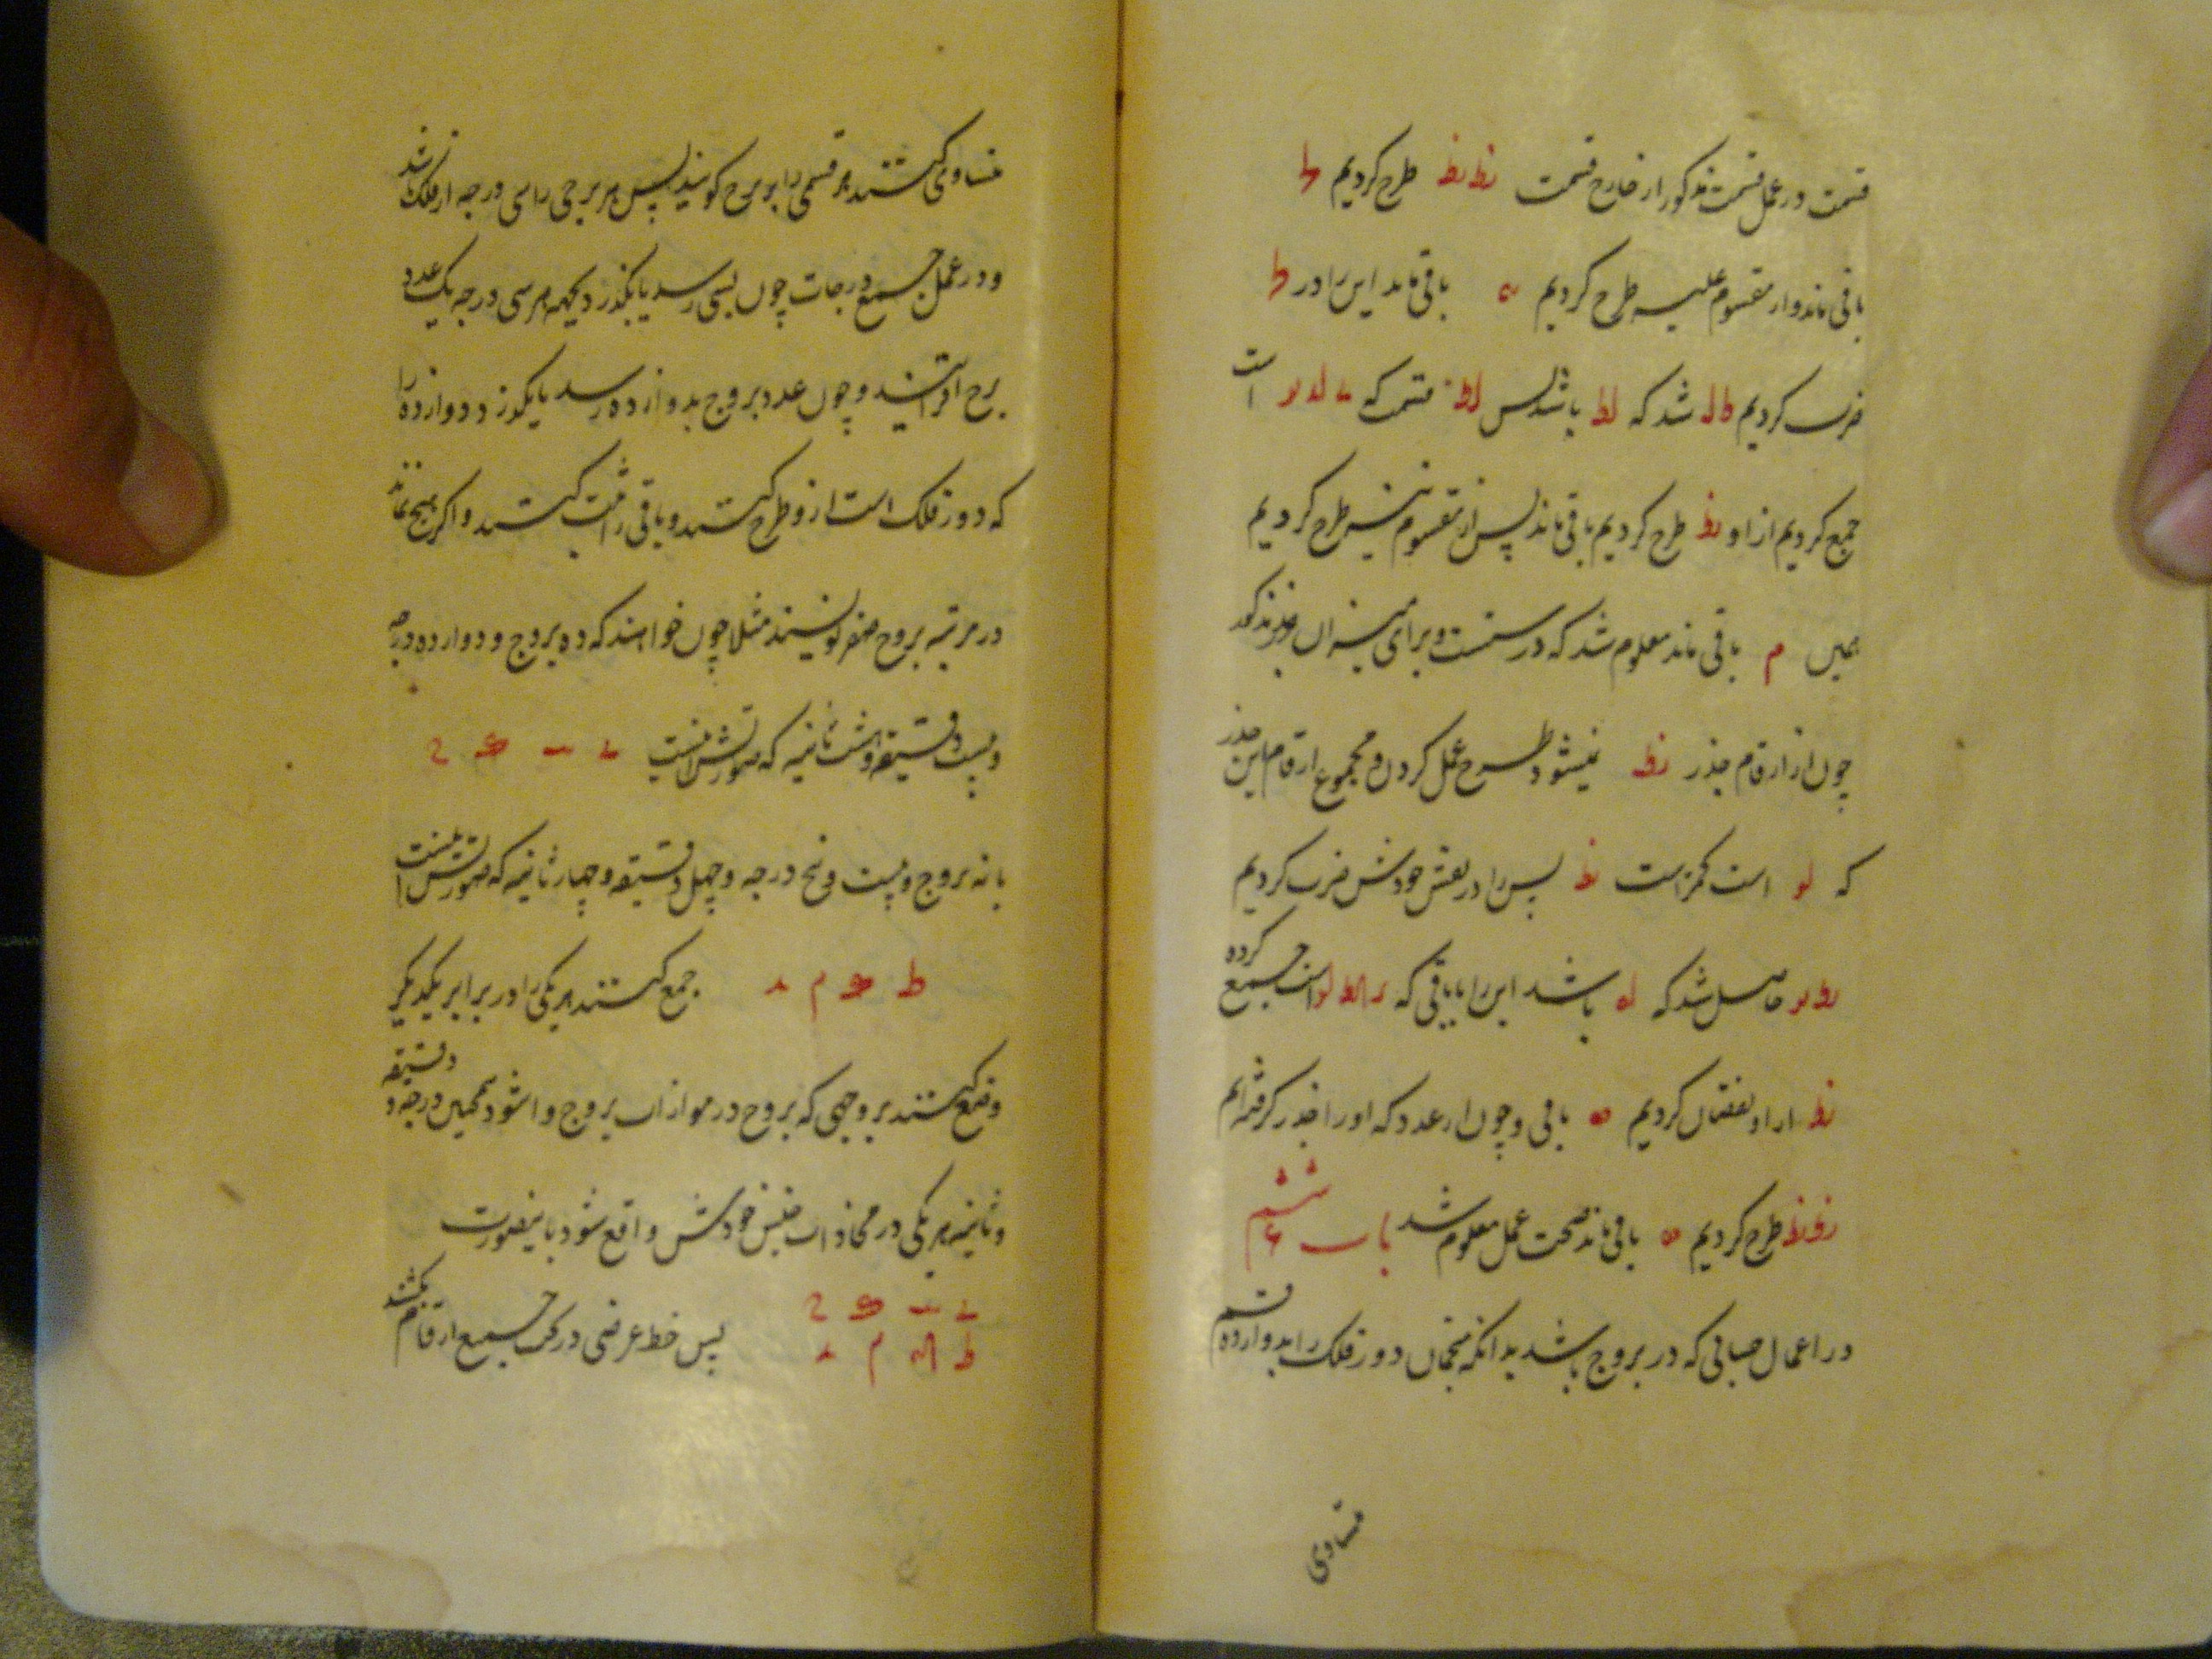 قسمت در عمل قسمت مذکور از خارج قسمت نط نط طرح کردیم ط
باقی ماند و از مقسوم علیه طرح کردیم باقی ماند این را در ط
ضرب کردیم شد که لط باشد پس قسمت که است
جمع کردیم از او نط طرح کردیم باقی ماند پس از مقسوم نیز طرح کردیم
همین م باقی ماند معلوم شد که درستست و برای میزان جذر مذکور
چون از ارقام جذر نط نمیشود طرح عمل کردن و مجموع ارقام این جذر
که لو است کمتر است نط پس را در نفس خودش ضرب کردیم
حاصل شد که له باشد این را با باقی که است جمیع کرده
نط از او نقصان کردیم باقی و چون از عدد که او را جذر گرفته ایم
نط نط طرح کردیم باقی ماند صحت عمل معلوم شد باب ششم ۶
در اعمال حسابی که در بروج باشد بدانکه منجمان دور فلک را بدوازده قسم
مساوی
مساوی کنند هر قسمی را برج گویند پس هر برجی را سی درجه از فلک باشد
و در عمل جمیع درجات چون بسی رسد یا بگذرد بجهه هر سی درجه یک عدد
برج افزایند و چون عدد بروج بدوازده رسد یا بگذرد دوازده را
که دور فلک است ازو طرح کنند و باقی را ثبت کنند و اگر هیچ نماند
در مرتبه بروج صفر نویسند مثلا چون خواهند که ده بروج و دوازده درجه
و بیست دقیقه و هشت ثانیه که صورتش اینست ے ـ ک ح
با نه بروج و بیست و نج درجه و چهل دقیقه و چهار ثانیه که صورتش اینست
ط که م د جمع کنند هر یکی را در برابر یکدیگر
وضع کنند بر وجهی که بروج در موازات بروج واشود همچنین درجه و دقیقه
و ثانیه هر یکی در محاذات جنس خودش واقع شود باینصورت
ے ـ ک ح
ط که م د پس خط عرضی در تحت جمیع ارقام بکشند